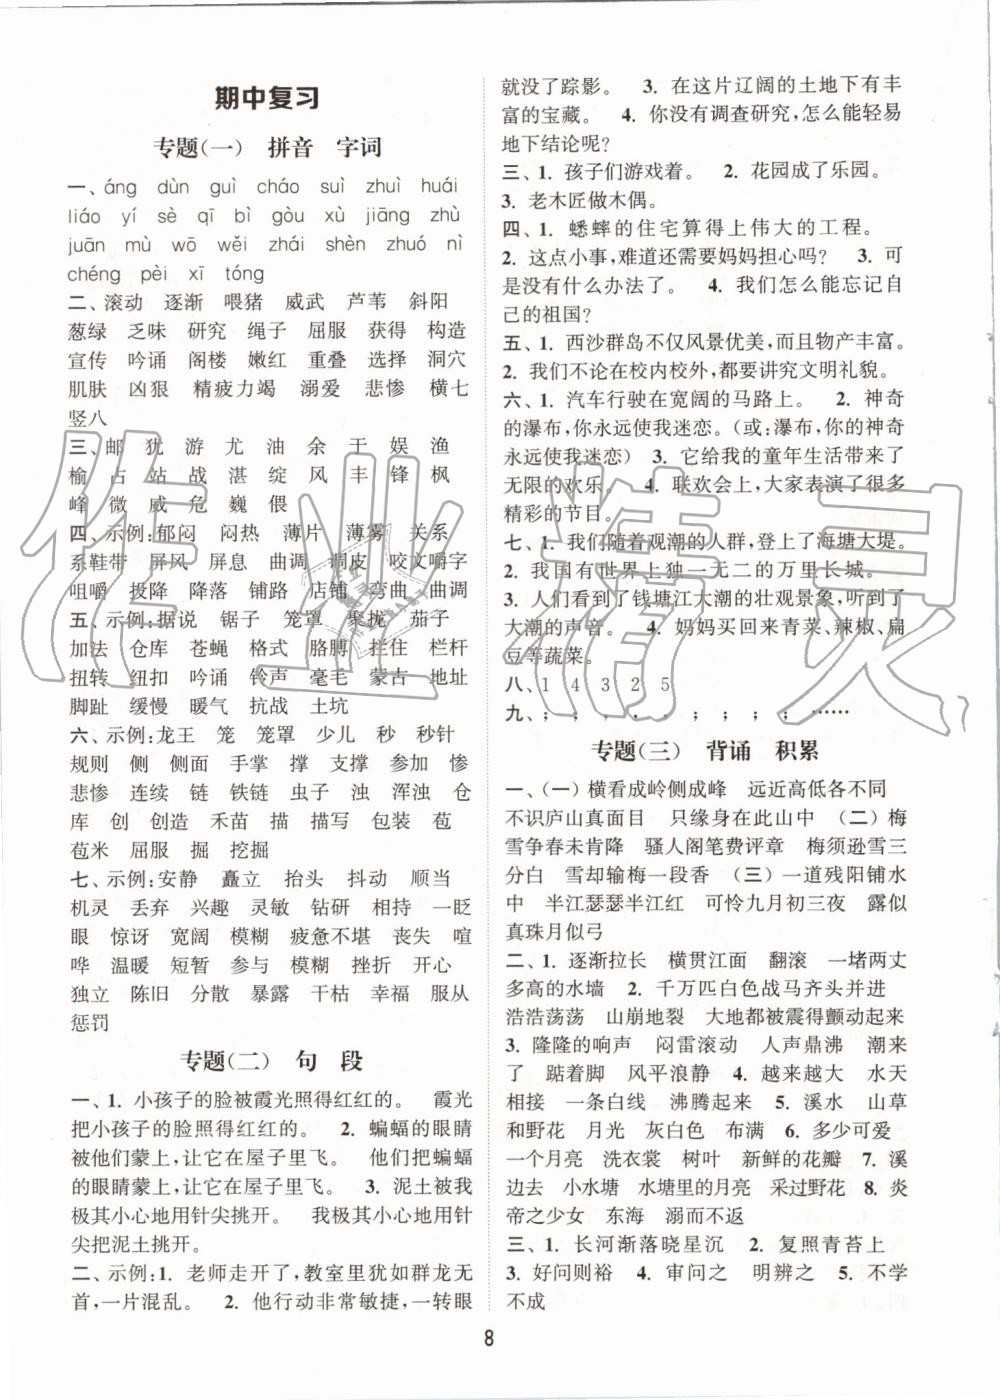 期中复习
专题(一)　拼音　字词
一、áng dùn guì cháo suì zhuì huái
liáo yí sè qī bì gòu xù jiāng zhù
juān mù wō wěi zhái shèn zhuó nì
chéng pèi xī tóng
二、滚动 逐渐 喂猪 威武 芦苇 斜阳
葱绿 乏味 研究 绳子 屈服 获得 构造
宣传 吟诵 阁楼 嫩红 重叠 选择 洞穴
肌肤 凶狠 精疲力竭 溺爱 悲惨 横七
竖八
三、邮 犹 游 尤 油 余 干 娱 渔
榆 占 站 战 湛 绽 风 丰 锋 枫
峰 微 威 危 巍 偎
四、示例:郁闷 闷热 薄片 薄雾 关系
系鞋带 屏风 屏息 曲调 调皮 咬文嚼字
咀嚼 投降 降落 铺路 店铺 弯曲 曲调
五、示例:据说 锯子 笼罩 聚拢 茄子
加法 仓库 苍蝇 格式 胳膊 拦住 栏杆
扭转 纽扣 吟诵 铃声 毫毛 毫米 地址
脚趾 缓慢 暖气 抗战 土坑
六、示例:龙王 笼 笼罩 少儿 秒 秒针
规则 侧 侧面 手掌 撑 支撑 参加 惨
悲惨 连续 链 铁链 虫子 浊 浑浊 仓
库 创 创造 禾苗 描 描写 包装 苞
苞米 屈服 掘 挖掘
七、示例:安静 矗立 抬头 抖动 顺当
机灵 丢弃 兴趣 灵敏 钻研 相持 一眨
眼 惊讶 宽阔 模糊 疲惫不堪 丧失 喧
哗 温暖 短暂 参与 模糊 挫折 开心
独立 陈旧 分散 暴露 干枯 幸福 服从
惩罚
专题(二)　句　段
一、1. 小孩子的脸被霞光照得红红的。 霞光
把小孩子的脸照得红红的。 2. 蝙蝠的眼睛
被他们蒙上,让它在屋子里飞。 他们把蝙蝠
的眼睛蒙上,让它在屋子里飞。 3. 泥土被我
极其小心地用针尖挑开。 我极其小心地用针
尖把泥土挑开。
二、示例:1. 老师走开了,教室里犹如群龙无
首,一片混乱。 2. 他行动非常敏捷,一转眼
就没了踪影。 3. 在这片辽阔的土地下有丰
富的宝藏。 4. 你没有调查研究,怎么能轻易
地下结论呢?
三、1. 孩子们游戏着。 2. 花园成了乐园。
3. 老木匠做木偶。
四、1. 蟋蟀的住宅算得上伟大的工程。
2. 这点小事,难道还需要妈妈担心吗? 3. 可
是没有什么办法了。 4. 我们怎么能忘记自
己的祖国?
五、1. 西沙群岛不仅风景优美,而且物产丰富。
2. 我们不论在校内校外,都要讲究文明礼貌。
六、1. 汽车行驶在宽阔的马路上。 2. 神奇
的瀑布,你永远使我迷恋。(或:瀑布,你的神奇
永远使我迷恋) 3. 它给我的童年生活带来了
无限的欢乐。 4. 联欢会上,大家表演了很多
精彩的节目。
七、1. 我们随着观潮的人群,登上了海塘大堤。
2. 我国有世界上独一无二的万里长城。
3. 人们看到了钱塘江大潮的壮观景象,听到了
大潮的声音。 4. 妈妈买回来青菜、辣椒、扁
豆等蔬菜。
八、1 4 3 2 5
九、; ; , , , ; ; ; ; ……
专题(三)　背诵　积累
一、(一)横看成岭侧成峰 远近高低各不同
不识庐山真面目 只缘身在此山中 (二)梅
雪争春未肯降 骚人阁笔费评章 梅须逊雪三
分白 雪却输梅一段香 (三)一道残阳铺水
中 半江瑟瑟半江红 可怜九月初三夜 露似
真珠月似弓
二、1. 逐渐拉长 横贯江面 翻滚 一堵两丈
多高的水墙 2. 千万匹白色战马齐头并进
浩浩荡荡 山崩地裂 大地都被震得颤动起来
3. 隆隆的响声 闷雷滚动 人声鼎沸 潮来
了 踮着脚 风平浪静 4. 越来越大 水天
相接 一条白线 沸腾起来 5. 溪水 山草
和野花 月光 灰白色 布满 6. 多少可爱
一个月亮 洗衣裳 树叶 新鲜的花瓣 7. 溪
边去 小水塘 水塘里的月亮 采过野花 8. 炎
帝之少女 东海 溺而不返
三、1. 长河渐落晓星沉 2. 复照青苔上
3. 好问则裕 4. 审问之 明辨之 5. 不学
不成
8